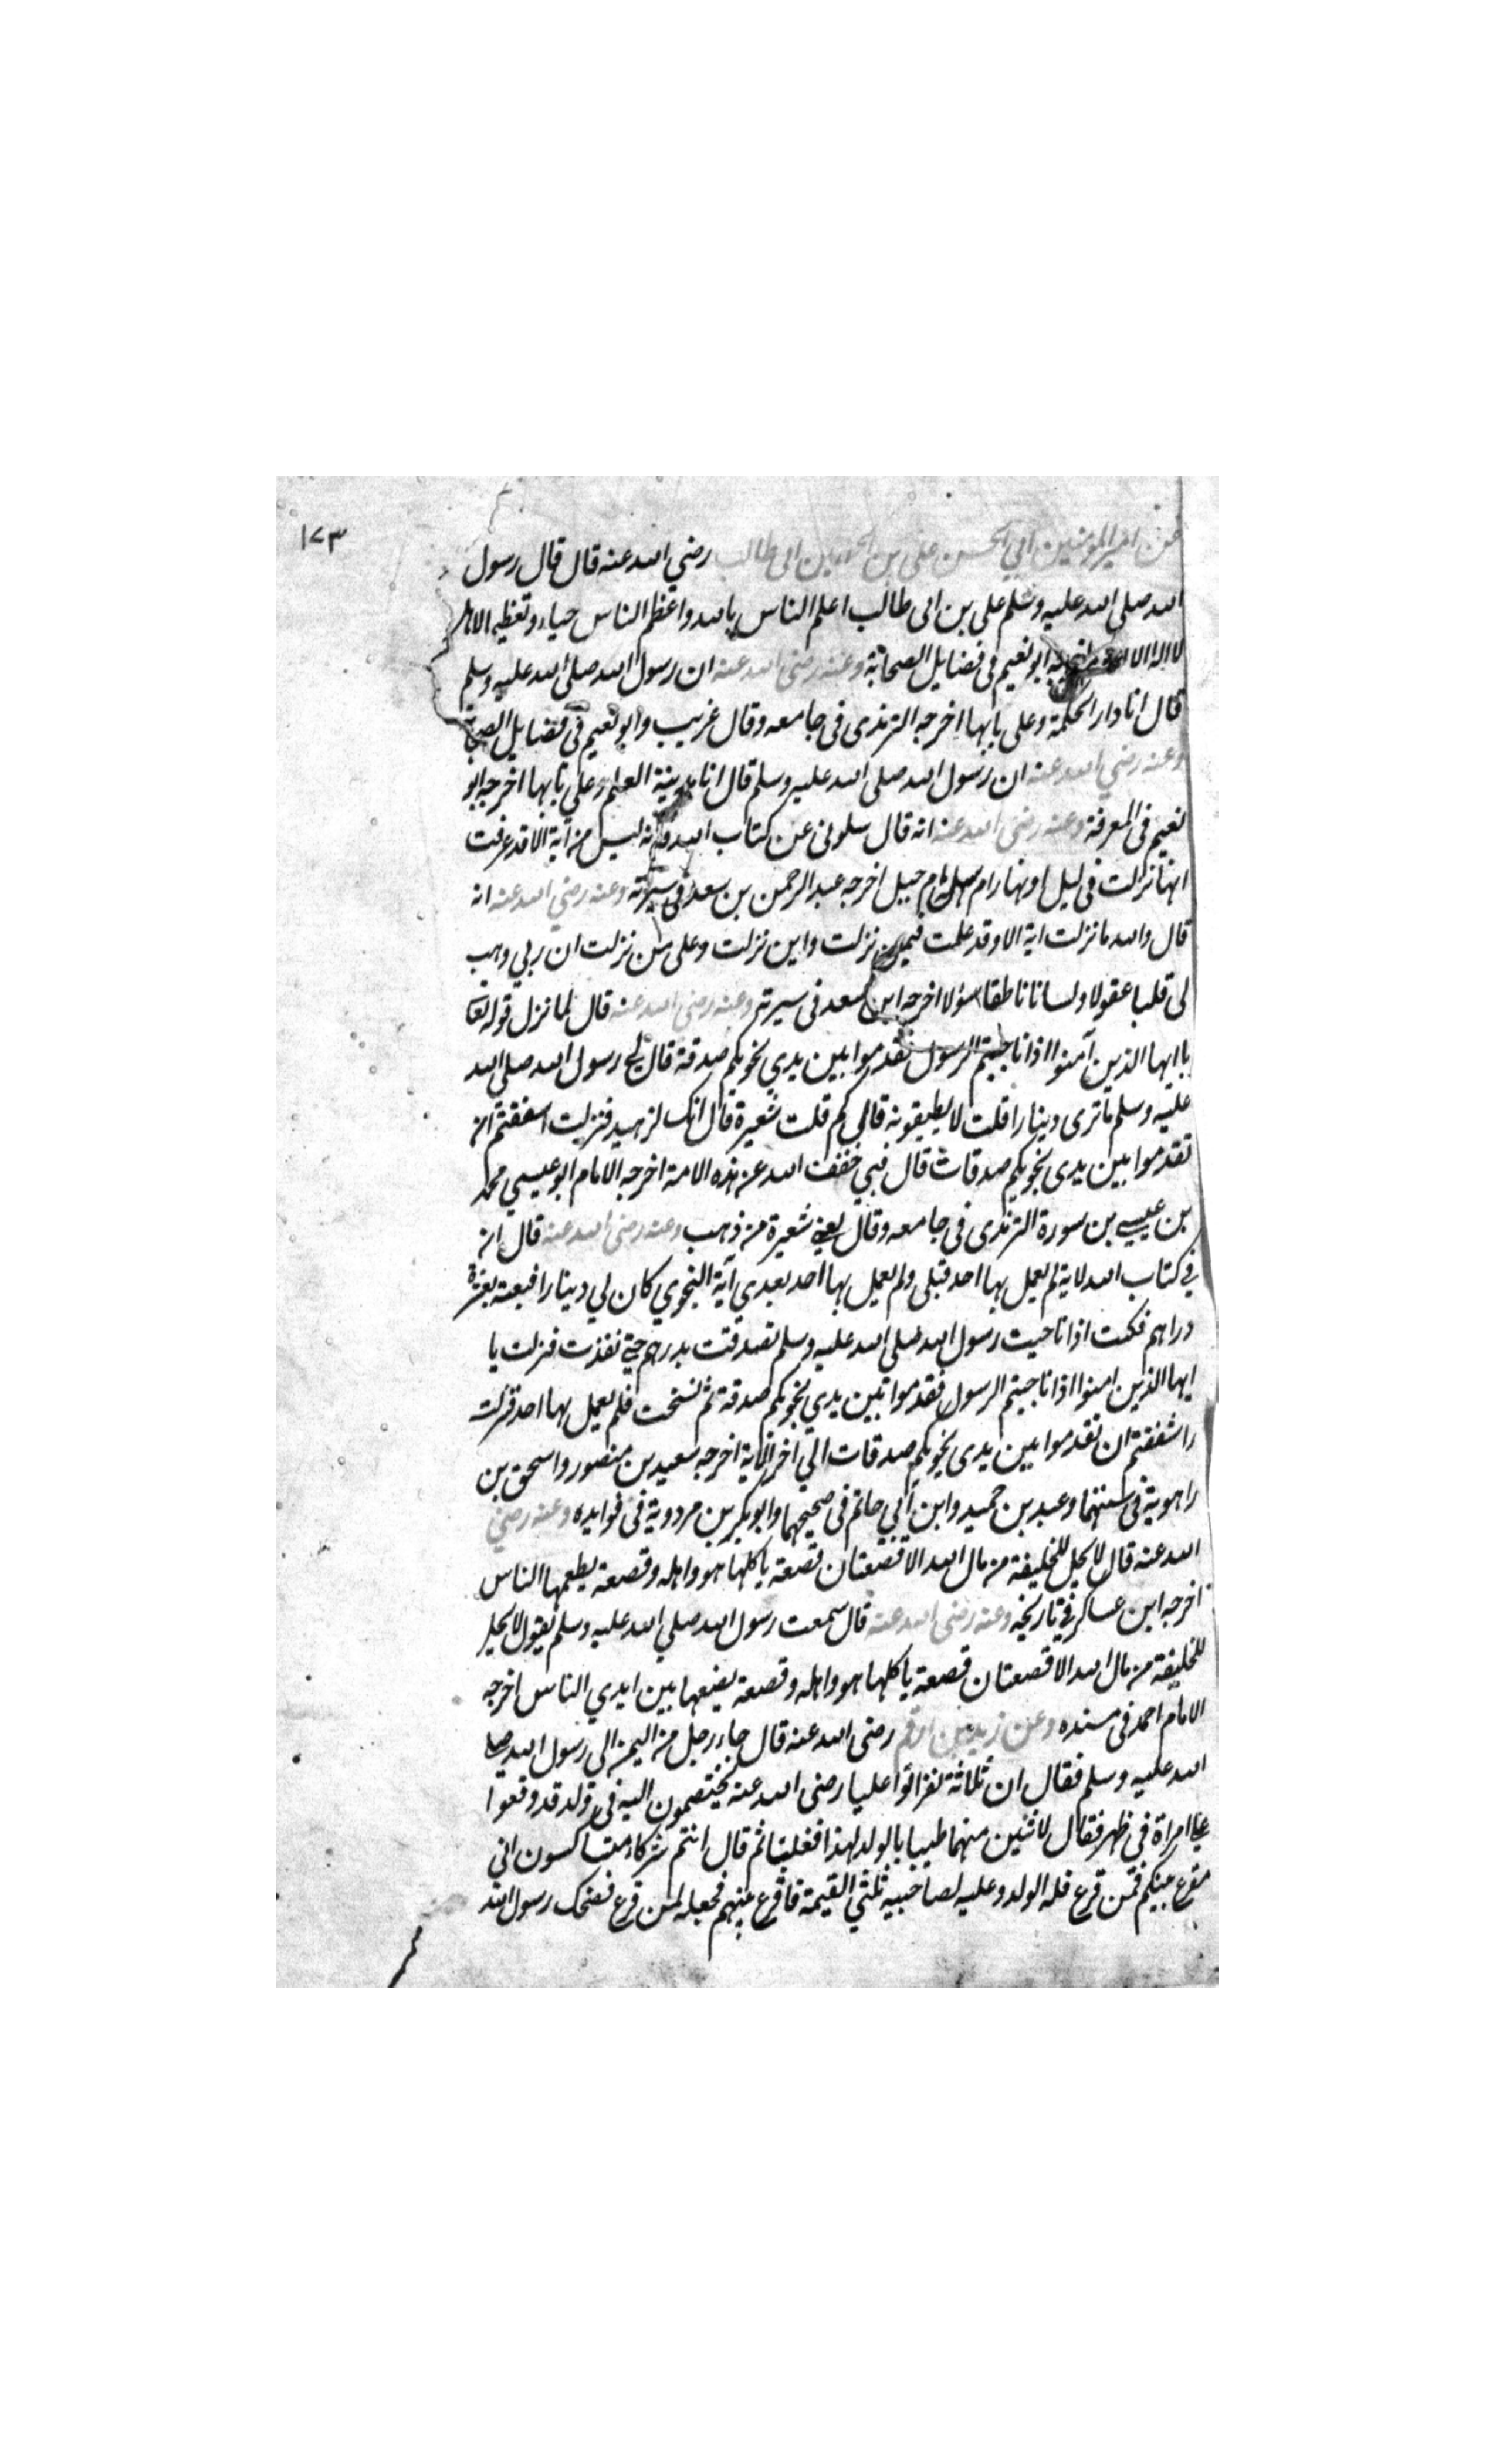 ١٧٣
عن امير المؤمنين ابي الحسن علي بن ابى طالب رضي الله عنه قال قال رسول
الله صلى الله عليه وسلم على بن ابى طالب اعلم الناس بالله واعظم الناس حياء وتعظيما لاهل
لا اله الا الله اخرجه ابو نعيم فى فضايل الصحابة وعنه رضى الله عنه ان رسول الله صلى الله عليه وسلم
قال انا دار الحكمة وعلى بابها اخرجه الترمذى فى جامعه وقال غريب وابو نعيم فى فضايل الصحابة
وعنه رضي الله عنه ان رسول الله صلى الله عليه وسلم قال انا مدينة العلم وعلي بابها اخرجه ابو
نعيم فى المعرفة وعنه رضى الله عنه انه قال سلونى عن كتاب الله فانه ليس من آية الا قد عرفت
انها نزلت فى ليل او نهار ام سهل ام جبيل اخرجه عبد الرحمن بن سعد فى سيرته وعنه رضي الله عنه انه
قال والله ما نزلت اية الا وقد علمت فيمن نزلت واين نزلت وعلى من نزلت ان ربي وهب
لى قلبا عقولا ولسانا ناطقا سؤلا اخرجه ابن سعد فى سيرته وعنه رضى الله عنه قال لما نزل قوله تعا
يا ايها الذين آمنوا اذا ناجيتم الرسول فقدموا بين يدي نجويكم صدقة قال لي رسول الله صلى الله
عليه وسلم ما ترى دينارا قلت لا يطيقونه قال كم قلت شعيرة قال انك لزهيد فنزلت اسفقتم ان
تقدموا بين يدى نجويكم صدقات قال فبي خفف الله عن هذه الامة اخرجه الامام ابو عيسي محمد
بن عيسى بن سورة الترمذى فى جامعه وقال يعني شعيرة من ذهب وعنه رضى الله عنه قال ان
في كتاب الله لاية لم يعمل بها احد قبلى ولم يعمل بها احد بعدي آية النجوي كان لي دينارا فبعته بعشرة
دراهم فكنت اذا ناجيت رسول الله صلى الله عليه وسلم تصدقت بدرهم حتي نفذت فنزلت يا
ايها الذين امنوا اذا ناجيتم الرسول فقدموا بين يدي نجويكم صدقة ثم نسخت فلم يعمل بها احد فنزلت
اشفقتم ان تقدموا بين يدى نجويكم صدقات الي اخر الاية اخرجه سعيد بن منصور واسحق بن
راهوية فى سننهما وعبد بن حميد وابن ابي حاتم فى صحيحهما وابو بكر بن مردوية فى فوايده وعنه رضي
الله عنه قال لا يحل للخليفة من مال الله الا قصعتان قصعة ياكلها هو واهله وقصعة يطعمها الناس
اخرجه ابن عساكر في تاريخه وعنه رضى الله عنه قال سمعت رسول الله صلي الله عليه وسلم يقول لا يحل
للخليفة من مال الله الا قصعتان قصعة ياكلها هو واهله وقصعة يضعها بين ايدي الناس اخرجه
الامام احمد فى مسنده وعن زيد بن ارقم رضى الله عنه قال جاء رجل من اليمن الى رسول الله صلى
الله عليه وسلم فقال ان ثلاثة نفر اتوا عليا رضى الله عنه يختصمون اليه فى ولد قد وقعوا
على امراة فى ظهر فقال لاثنين منهما طيبا بالولد لهذا فغلبتا ثم قال انتم شركاء متشاكسون انى
مقرع بينكم فمن قرع فله الولد وعليه لصاحبيه ثلثي القيمة فاقرع بينهم فجعله لمن قرع فضحك رسول الله